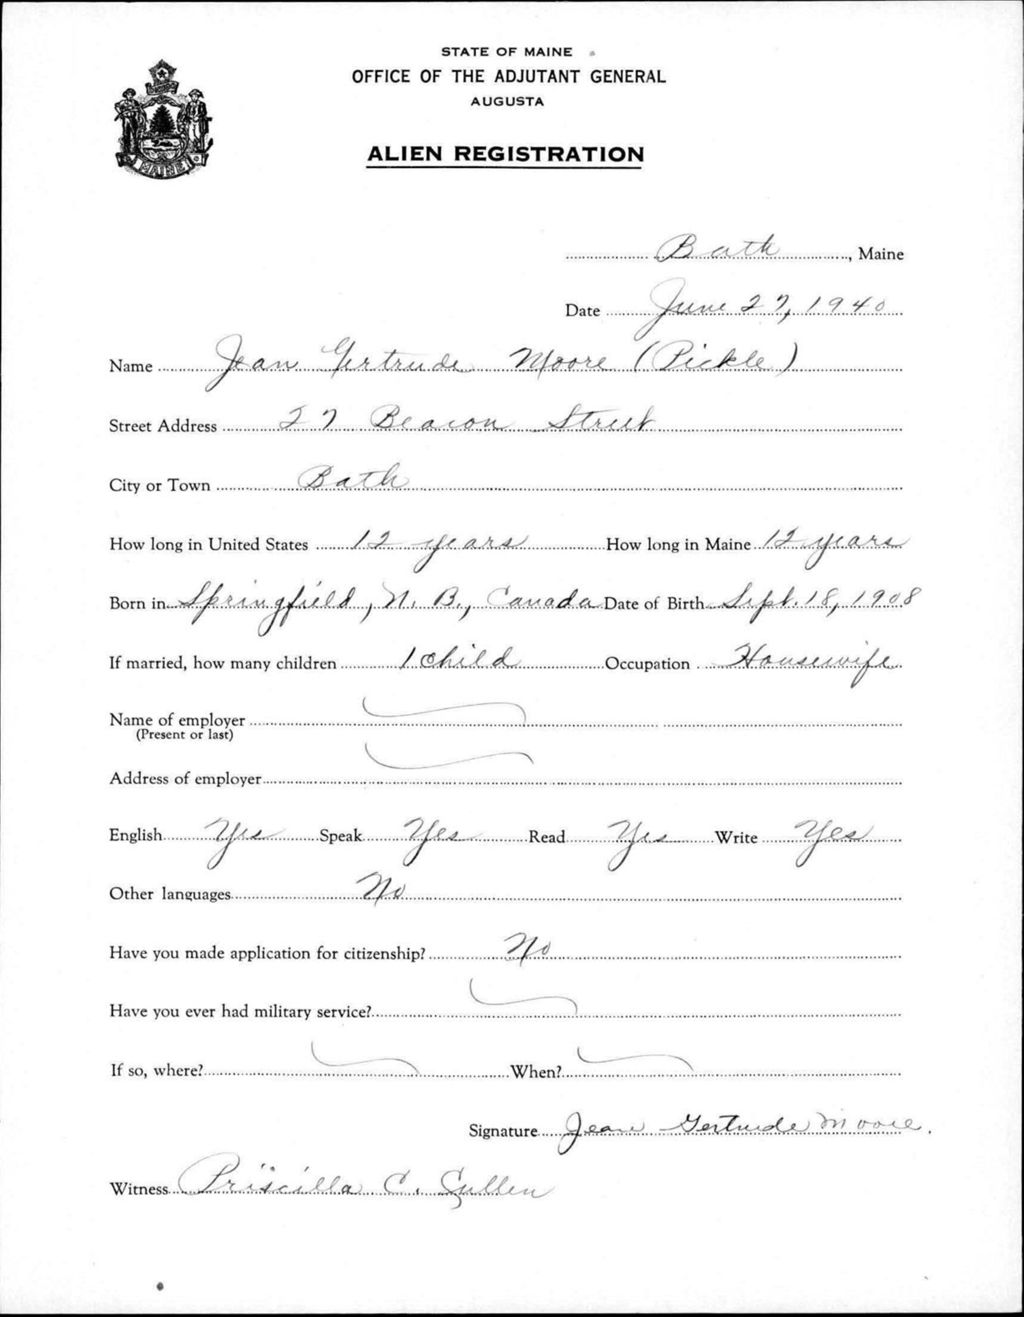 STATE OF MAINE
OFFICE OF THE ADJUTANT GENERAL
AUGUSTA
ALIEN REGISTRATION
MAINE
Bath, Maine
Date June 27, 1940
Name Jean Gertrude Moore (Pickle)
Street Address 27 Beacon Street
City or Town Bath
How long in United States 12 years How long in Maine 12 years
Born in Springfield, N. B., Canada Date of Birth Sept. 18, 1908
If married, how many children 1 child Occupation Housewife
Name of employer
(Present or last)
Address of employer
English Yes Speak Yes Read Yes Write Yes
Other languages No
Have you made application for citizenship? No
Have you ever had military service?
If so, where? When?
Signature Jean Gertrude Moore.
Witness Priscilla C. Cullen